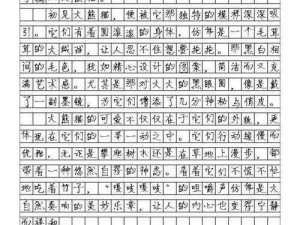 初见大熊猫，便被它那独特的模样深深吸
引。它们有着圆滚滚的身体，仿佛是一个毛茸
茸的大绒球，让人忍不住想要抱抱。那黑白相
间的毛色，犹如精心设计的图案，简洁而又充
满艺术感。尤其是那对大大的黑眼圈，像是戴
了一副墨镜，为它们增添了几分神秘与俏皮。
大熊猫的可爱不仅仅在于它们的外貌，更
体现在它们的一举一动之中。它们行动缓慢而
优雅，无论是攀爬树木还是在草地上漫步，都
带着一种悠然自得的神态。看着它们不慌不忙
地吃着竹子，“嘎吱嘎吱”的咀嚼声仿佛是大
自然奏响的美妙乐章，让人的内心也变得宁静
而祥和